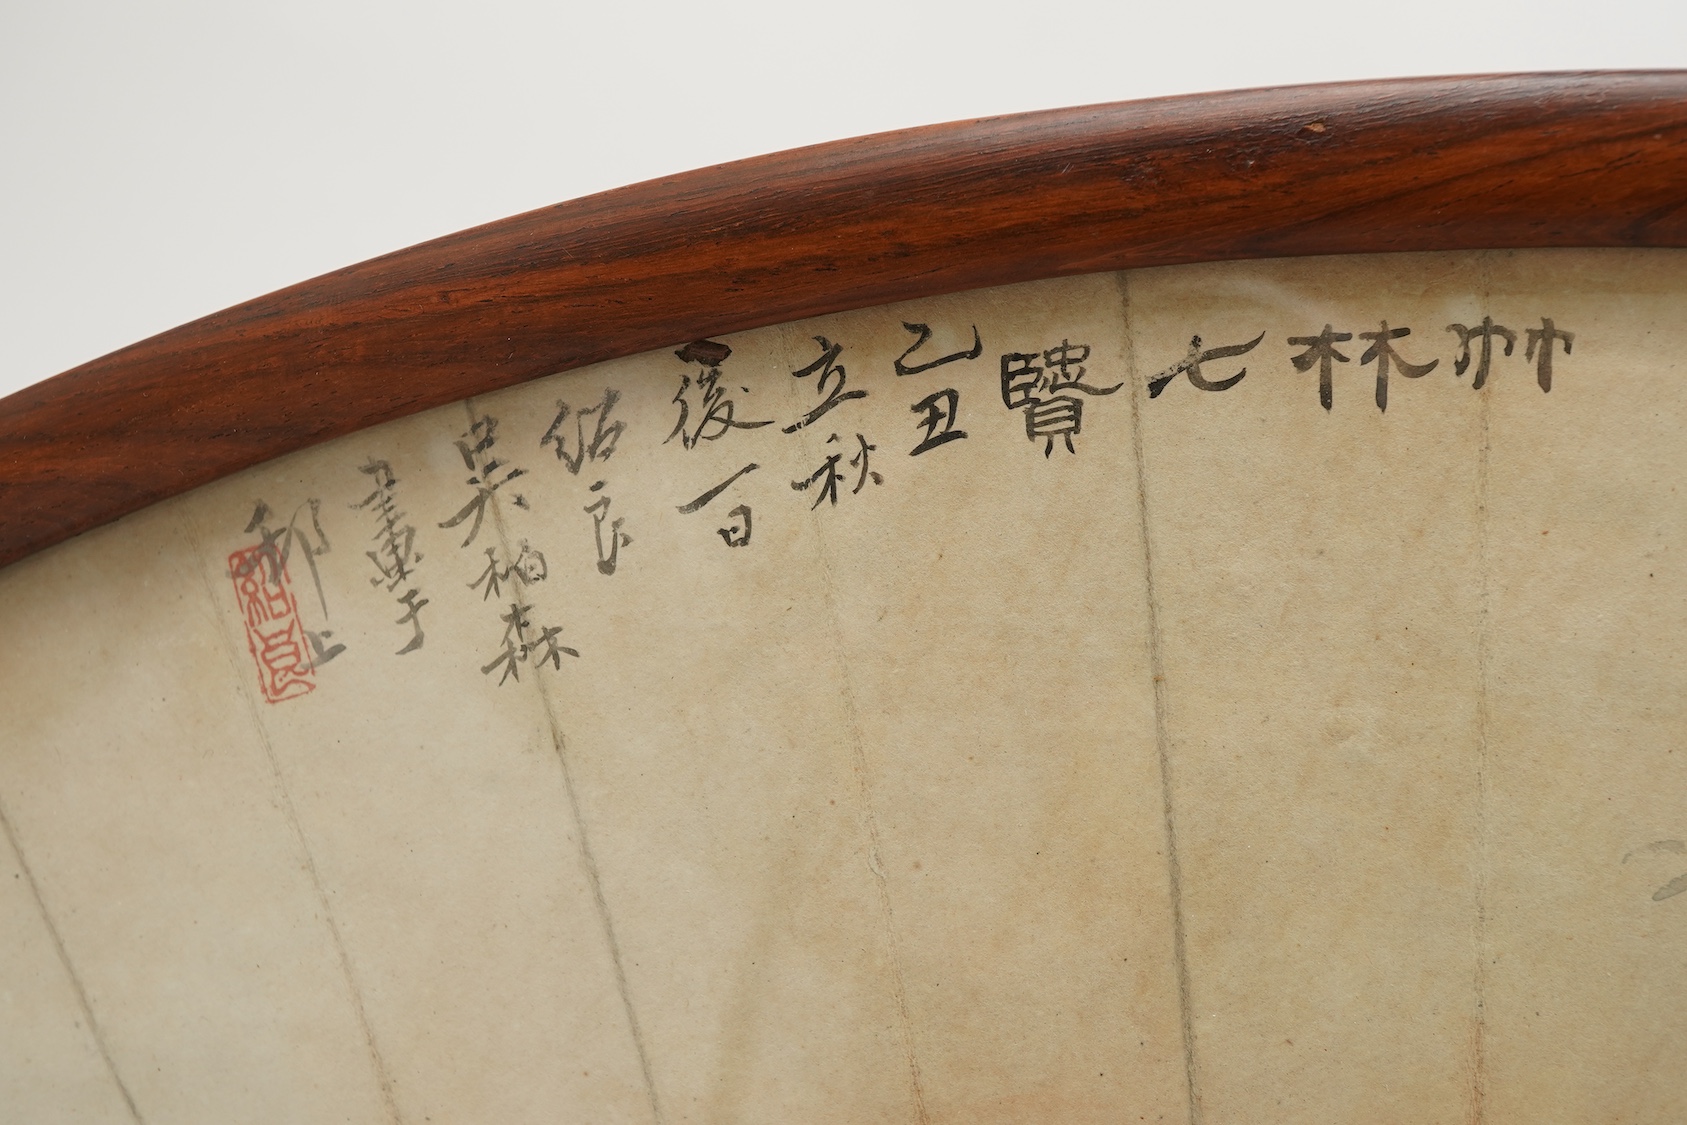 竹林七賢
乙丑
立秋
後一日
紹良
吳柏森
畫東于
邗上
紹良